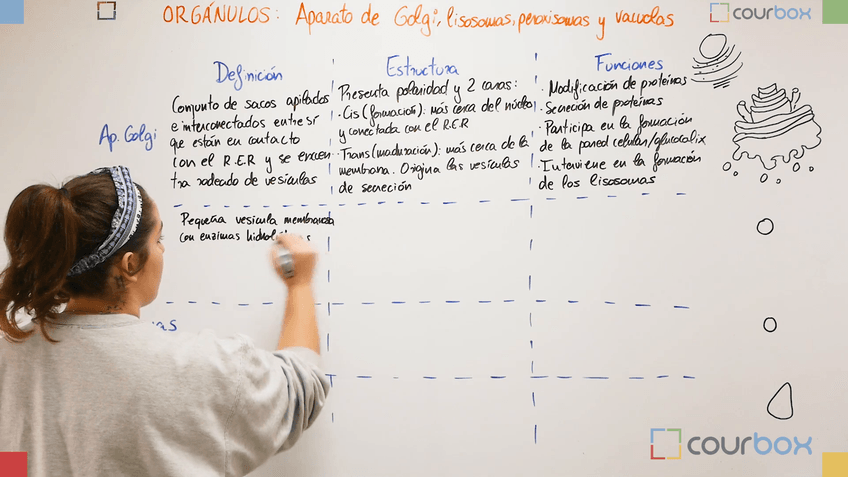 ORGÁNULOS: Aparato de Golgi, lisosomas, peroxisomas y vacuolas
courbox
Definición
Estructura
Funciones
Ap. Golgi
Conjunto de sacos apilados
e interconectados entre sí
que están en contacto
con el R.E.R y se encuen
tra rodeado de vesículas
Presenta polaridad y 2 caras:
· Cis (formación): más cerca del núcleo
y conectada con el R.E.R
· Trans (maduración): más cerca de la
membrana. Origina las vesículas
de secreción
· Modificación de proteínas
· Secreción de proteínas
· Participa en la formación
de la pared celular/glucocalix
· Interviene en la formación
de los lisosomas
Pequeña vesícula membranosa
con enzimas
courbox